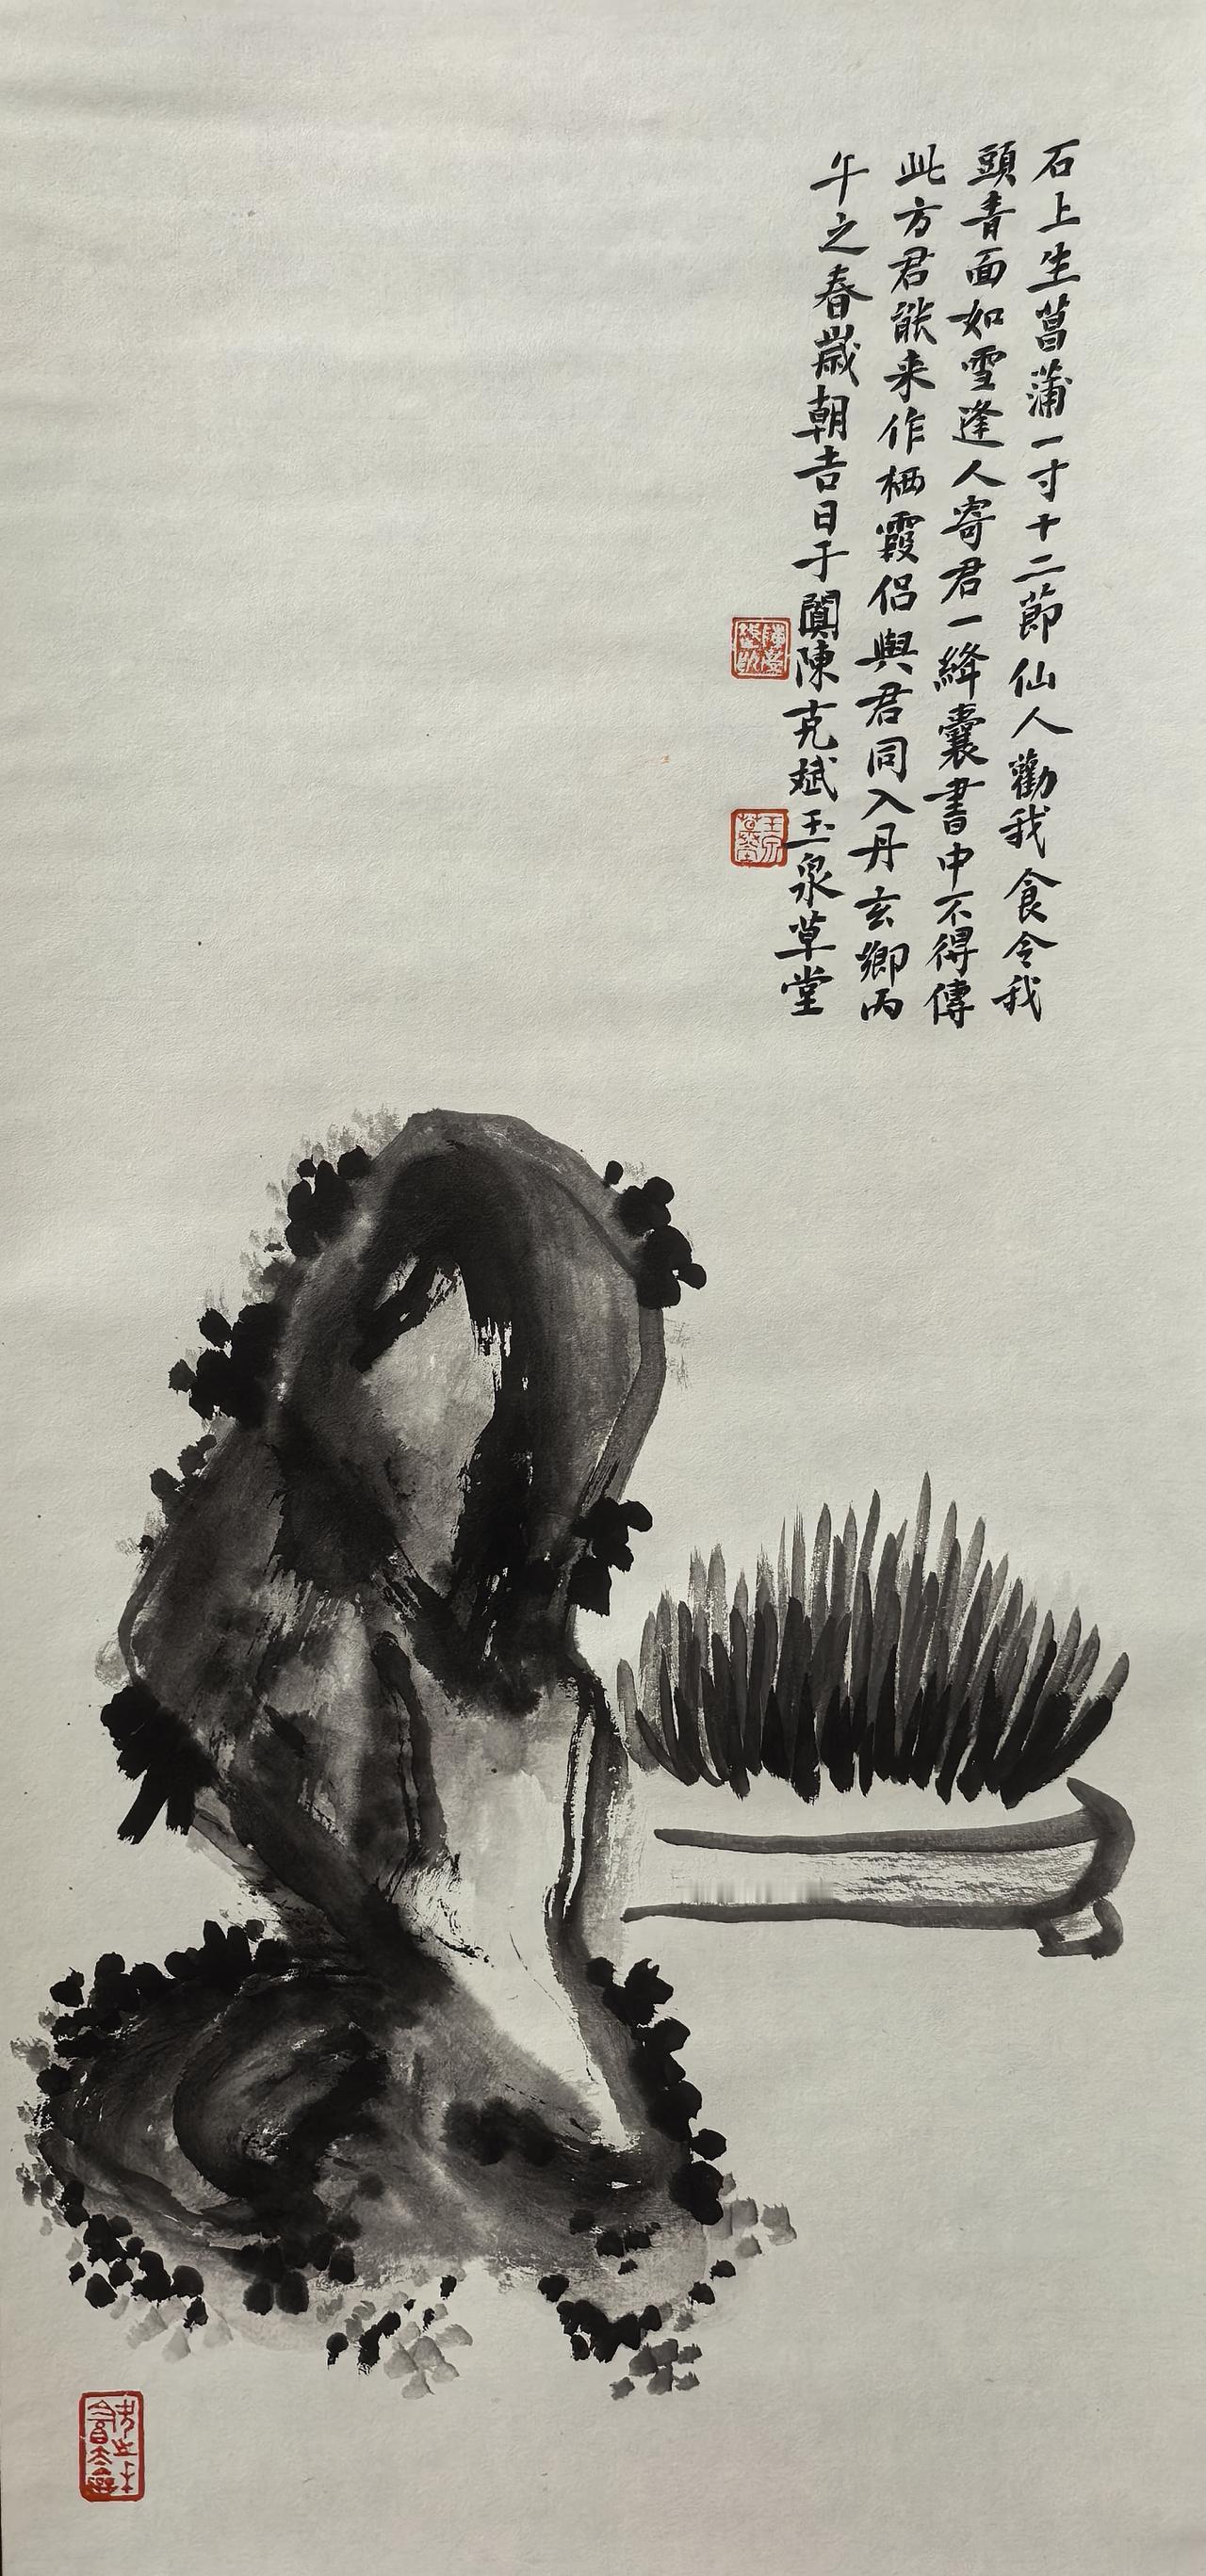 石上生菖蒲一寸十二節仙人勸我食令我
頭青面如雪逢人寄君一絳囊書中不得傳
此方君能来作栖霞侣與君同入丹玄鄉丙
午之春歲朝吉日于闐陳克斌玉泉草堂